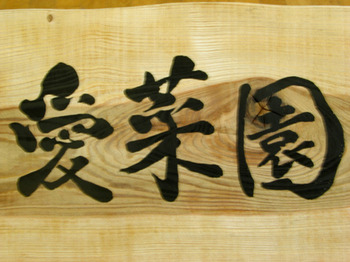 愛菜園